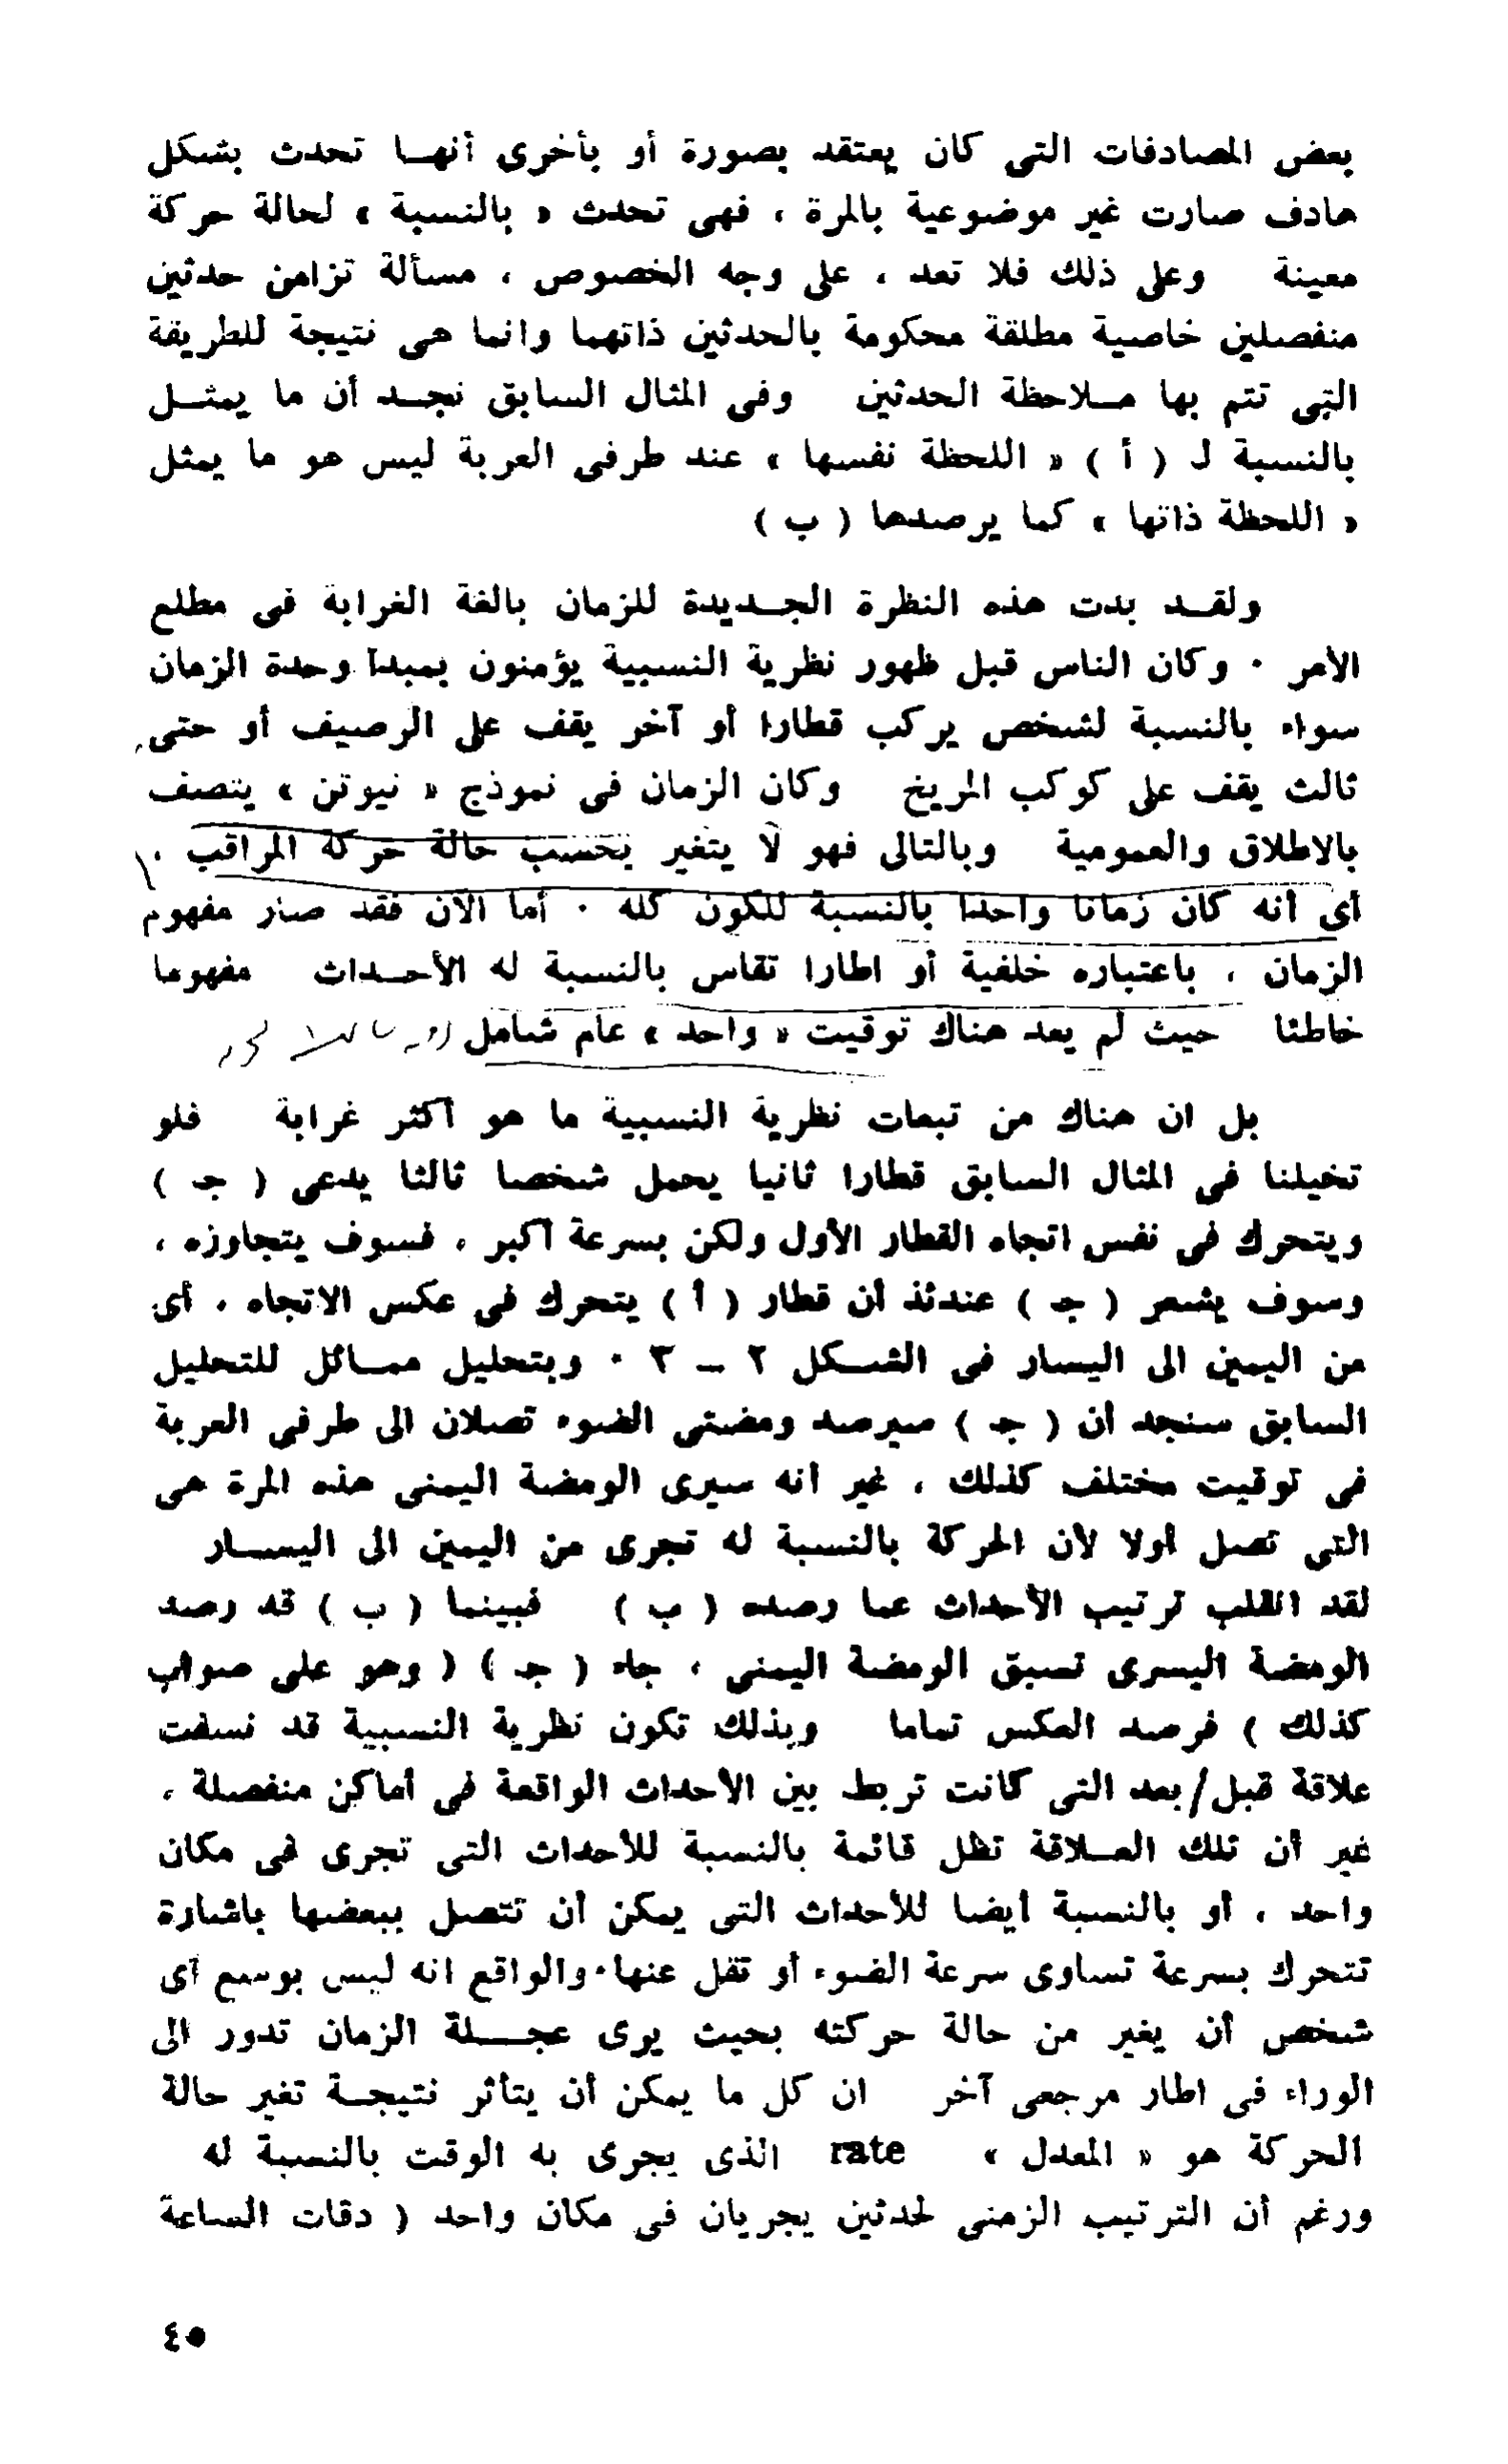 بعض المصادفات التى كان يعتقد بصورة أو بأخرى أنهـا تحدث بشكل
هادف صارت غير موضوعية بالمرة ، فهى تحدث « بالنسبة » لحالة حركة
معينة وعلى ذلك فلا تعد ، على وجه الخصوص ، مسألة تزامن حدثين
منفصلين خاصية مطلقة محكومة بالحدثين ذاتهما وانما هى نتيجة للطريقة
التى تتم بها مـلاحظة الحدثين وفى المثال السابق نجـد أن ما يمثـل
بالنسبة لـ ( أ ) « اللحظة نفسها » عند طرفى العربة ليس هو ما يمثل
« اللحظة ذاتها » كما يرصدها ( ب )
ولقـد بدت هذه النظرة الجـديدة للزمان بالغة الغرابة فى مطلع
الأمر ٠ وكان الناس قبل ظهور نظرية النسبية يؤمنون بمبدأ وحدة الزمان
سواء بالنسبة لشخص يركب قطارا أو آخر يقف على الرصيف أو حتى
ثالث يقف على كوكب المريخ وكان الزمان فى نموذج « نيوتن » يتصف
بالاطلاق والعمومية وبالتالى فهو لا يتغير بحسب حالة حركة المراقب ٠
أى أنه كان زمانا واحدا بالنسبة للكون كله ٠ أما الآن فقد صار مفهوم
الزمان ، باعتباره خلفية أو اطارا تقاس بالنسبة له الأحـداث مفهوما
خاطئا حيث لم يعد هناك توقيت « واحد » عام شامل
بل ان هناك من تبعات نظرية النسبية ما هو أكثر غرابة فلو
تخيلنا فى المثال السابق قطارا ثانيا يحمل شخصا ثالثا يدعى ( جـ )
ويتحرك فى نفس اتجاه القطار الأول ولكن بسرعة أكبر ، فسوف يتجاوزه ،
وسوف يشعر ( جـ ) عندئذ أن قطار ( أ ) يتحرك فى عكس الاتجاه ، أى
من اليمين الى اليسار فى الشـكل ٢ ـ ٣ ٠ وبتحليل ممـاثل للتحليل
السابق سنجد أن ( جـ ) سيرصد ومضتى الضوء تصلان الى طرفى العربة
فى توقيت مختلف كذلك ، غير أنه سيرى الومضة اليمنى هذه المرة هى
التى تصل أولا لأن الحركة بالنسبة له تجرى من اليمين الى اليسـار
لقد انقلب ترتيب الأحداث عما رصده ( ب ) فبينما ( ب ) قد رصد
الومضة اليسرى تسبق الومضة اليمنى ، جاء ( جـ ) ( وهو على صواب
كذلك ) فرصد العكس تماما وبذلك تكون نظرية النسبية قد نسفت
علاقة قبل/بعد التى كانت تربط بين الأحداث الواقعة فى أماكن منفصلة ،
غير أن تلك العـلاقة تظل قائمة بالنسبة للأحداث التى تجرى فى مكان
واحد ، أو بالنسبة أيضا للأحداث التى يمكن أن تتصل ببعضها باشارة
تتحرك بسرعة تساوى سرعة الضوء أو تقل عنها٠ والواقع انه ليس بوسع أى
شخص أن يغير من حالة حركته بحيث يرى عجـلة الزمان تدور الى
الوراء فى اطار مرجعى آخر ان كل ما يمكن أن يتأثر نتيجـة تغير حالة
الحركة هو « المعدل » rate الذى يجرى به الوقت بالنسبة له
ورغم أن الترتيب الزمنى لحدثين يجريان فى مكان واحد ( دقات الساعة
٤٥